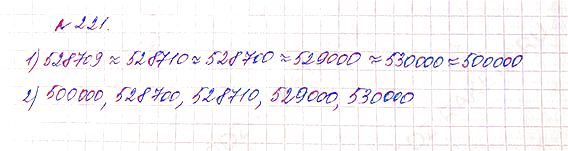 №221.
1) 528709 ≈ 528710 ≈ 528700 ≈ 529000 ≈ 530000 ≈ 500000
2) 500000, 528700, 528710, 529000, 530000